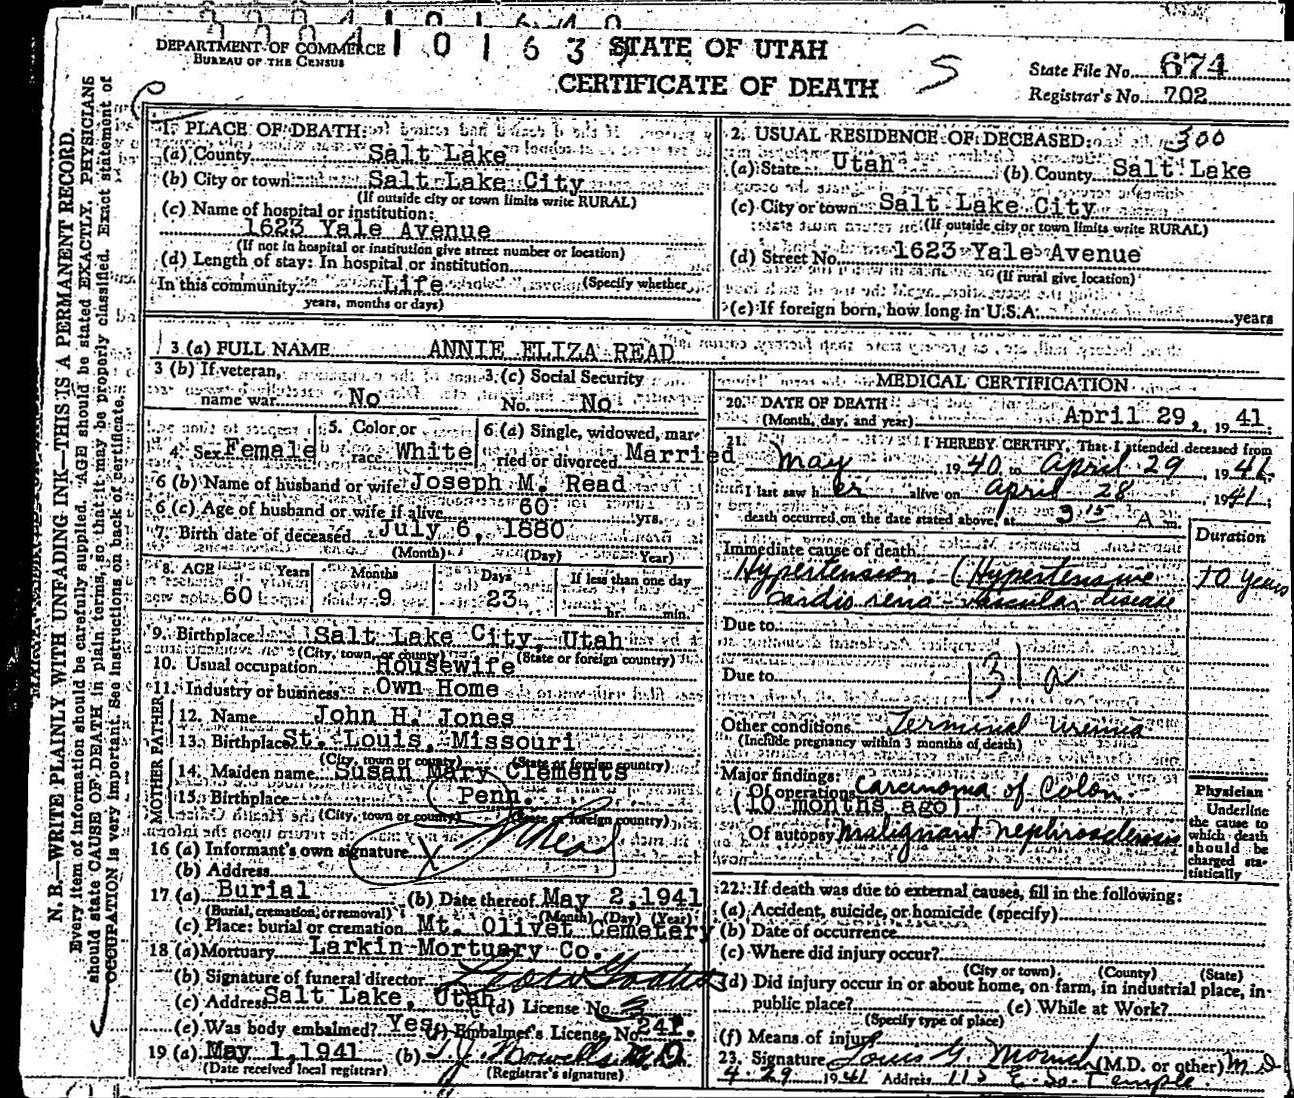 DEPARTMENT OF COMMERCE
BUREAU OF THE CENSUS
4 1 0 1 6 3
STATE OF UTAH
CERTIFICATE OF DEATH
5
State File No. 674
Registrar's No. 702
N. B.—WRITE PLAINLY WITH UNFADING INK—THIS IS A PERMANENT RECORD.
Every item of information should be carefully supplied. AGE should be stated EXACTLY. PHYSICIANS
should state CAUSE OF DEATH in plain terms, so that it may be properly classified. Exact statement of
OCCUPATION is very important. See instructions on back of certificate.
1. PLACE OF DEATH:
(a) County Salt Lake
(b) City or town Salt Lake City
(If outside city or town limits write RURAL)
(c) Name of hospital or institution:
1623 Yale Avenue
(If not in hospital or institution give street number or location)
(d) Length of stay: In hospital or institution
In this community Life (Specify whether
years, months or days)
2. USUAL RESIDENCE OF DECEASED: 300
(a) State Utah (b) County Salt Lake
(c) City or town Salt Lake City
(If outside city or town limits write RURAL)
(d) Street No. 1623 Yale Avenue
(If rural give location)
(e) If foreign born, how long in U.S.A. years
3 (a) FULL NAME ANNIE ELIZA READ
3 (b) If veteran,
name war No
3 (c) Social Security
No. No
4. Sex Female
5. Color or
race White
6 (a) Single, widowed, mar-
ried or divorced Married
6 (b) Name of husband or wife Joseph M. Read
6 (c) Age of husband or wife if alive 60 yrs.
7. Birth date of deceased July 6, 1880
(Month) (Day) Year)
8. AGE Years Months Days If less than one day
60 9 23 hr. min.
9. Birthplace Salt Lake City, Utah
(City, town, or county) (State or foreign country)
10. Usual occupation Housewife
11. Industry or business Own Home
FATHER
12. Name John H. Jones
13. Birthplace St. Louis, Missouri
(City, town or county) (State or foreign country)
MOTHER
14. Maiden name Susan Mary Clements
15. Birthplace Penn.
(City, town or county) (State or foreign country)
16 (a) Informant's own signature X Read
(b) Address
17 (a) Burial (b) Date thereof May 2, 1941
(Burial, cremation, or removal) (Month) (Day) (Year)
(c) Place: burial or cremation Mt. Olivet Cemetery
18 (a) Mortuary Larkin Mortuary Co.
(b) Signature of funeral director
(c) Address Salt Lake, Utah (d) License No. 3
(e) Was body embalmed? Yes (f) Embalmer's License No. 241.
19 (a) May 1, 1941 (b) T. J. Howells M.D
(Date received local registrar) (Registrar's signature)
MEDICAL CERTIFICATION
20. DATE OF DEATH April 29, 1941.
(Month, day, and year)
21. I HEREBY CERTIFY, That I attended deceased from
May , 1940, to April 29 , 1941.
I last saw her alive on April 28 1941.
death occurred on the date stated above, at 3 15 A m.
Duration
Immediate cause of death
Hypertension. (Hypertensive 10 years
cardio reno-vascular disease
Due to
Due to 131 a
Other conditions Terminal Uremia
(Include pregnancy within 3 months of death)
Major findings:
Of operations Carcinoma of Colon.
(10 months ago)
Of autopsy malignant nephrosclerosis
Physician
Underline
the cause to
which death
should be
charged sta-
tistically
22. If death was due to external causes, fill in the following:
(a) Accident, suicide, or homicide (specify)
(b) Date of occurrence
(c) Where did injury occur?
(City or town) (County) (State)
(d) Did injury occur in or about home, on farm, in industrial place, in
public place? (e) While at Work?
(Specify type of place)
(f) Means of injury
23. Signature Louis G. Moench (M.D. or other) M D
4-29 1941 Address 115 E. So. Temple.